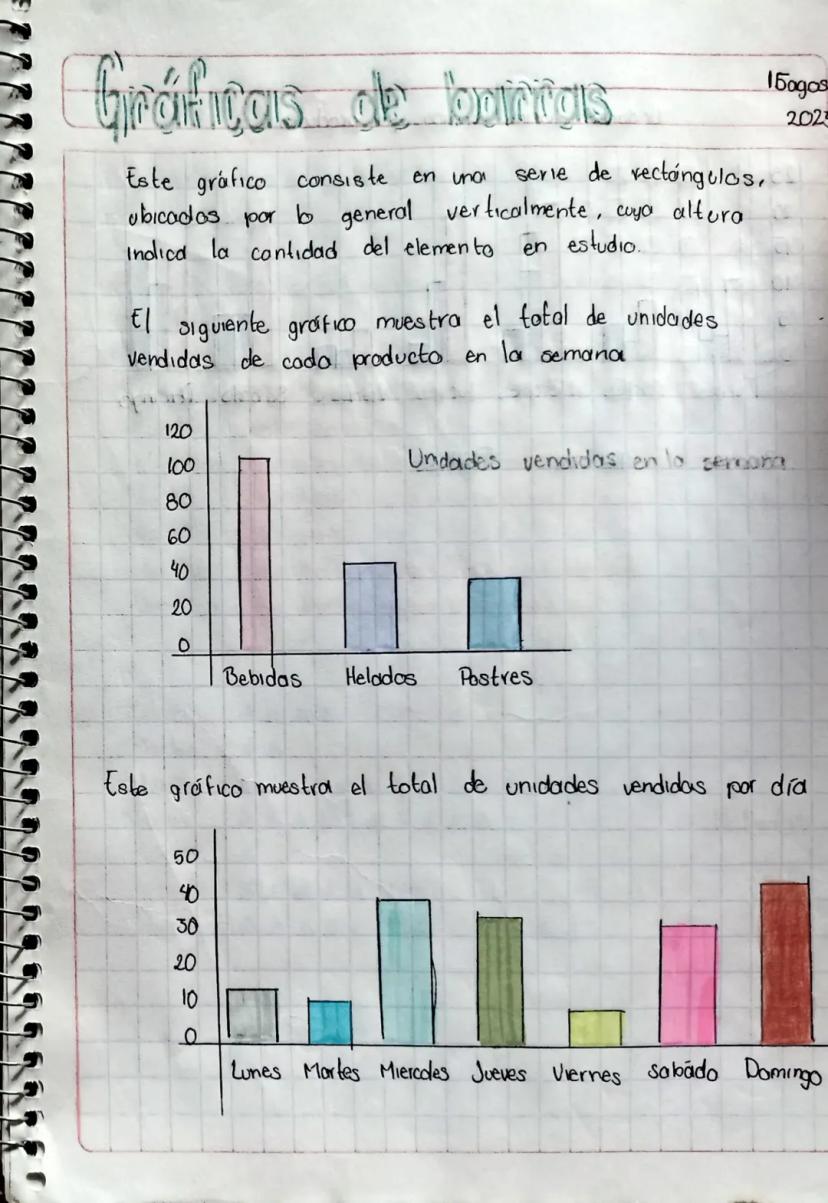 Gráficas de barras
15 agos
202
Este gráfico consiste en una serie de rectángulos,
ubicados por lo general verticalmente, cuya altura
indica la cantidad del elemento en estudio.
El siguiente gráfico muestra el total de unidades
vendidas de cada producto en la semana
120
100
80
60
40
20
0
Undades vendidas en la semana
Bebidas Helados Postres
Este gráfico muestra el total de unidades vendidas por día
50
40
30
20
10
0
Lunes Martes Miercoles Jueves Viernes sabádo Domingo